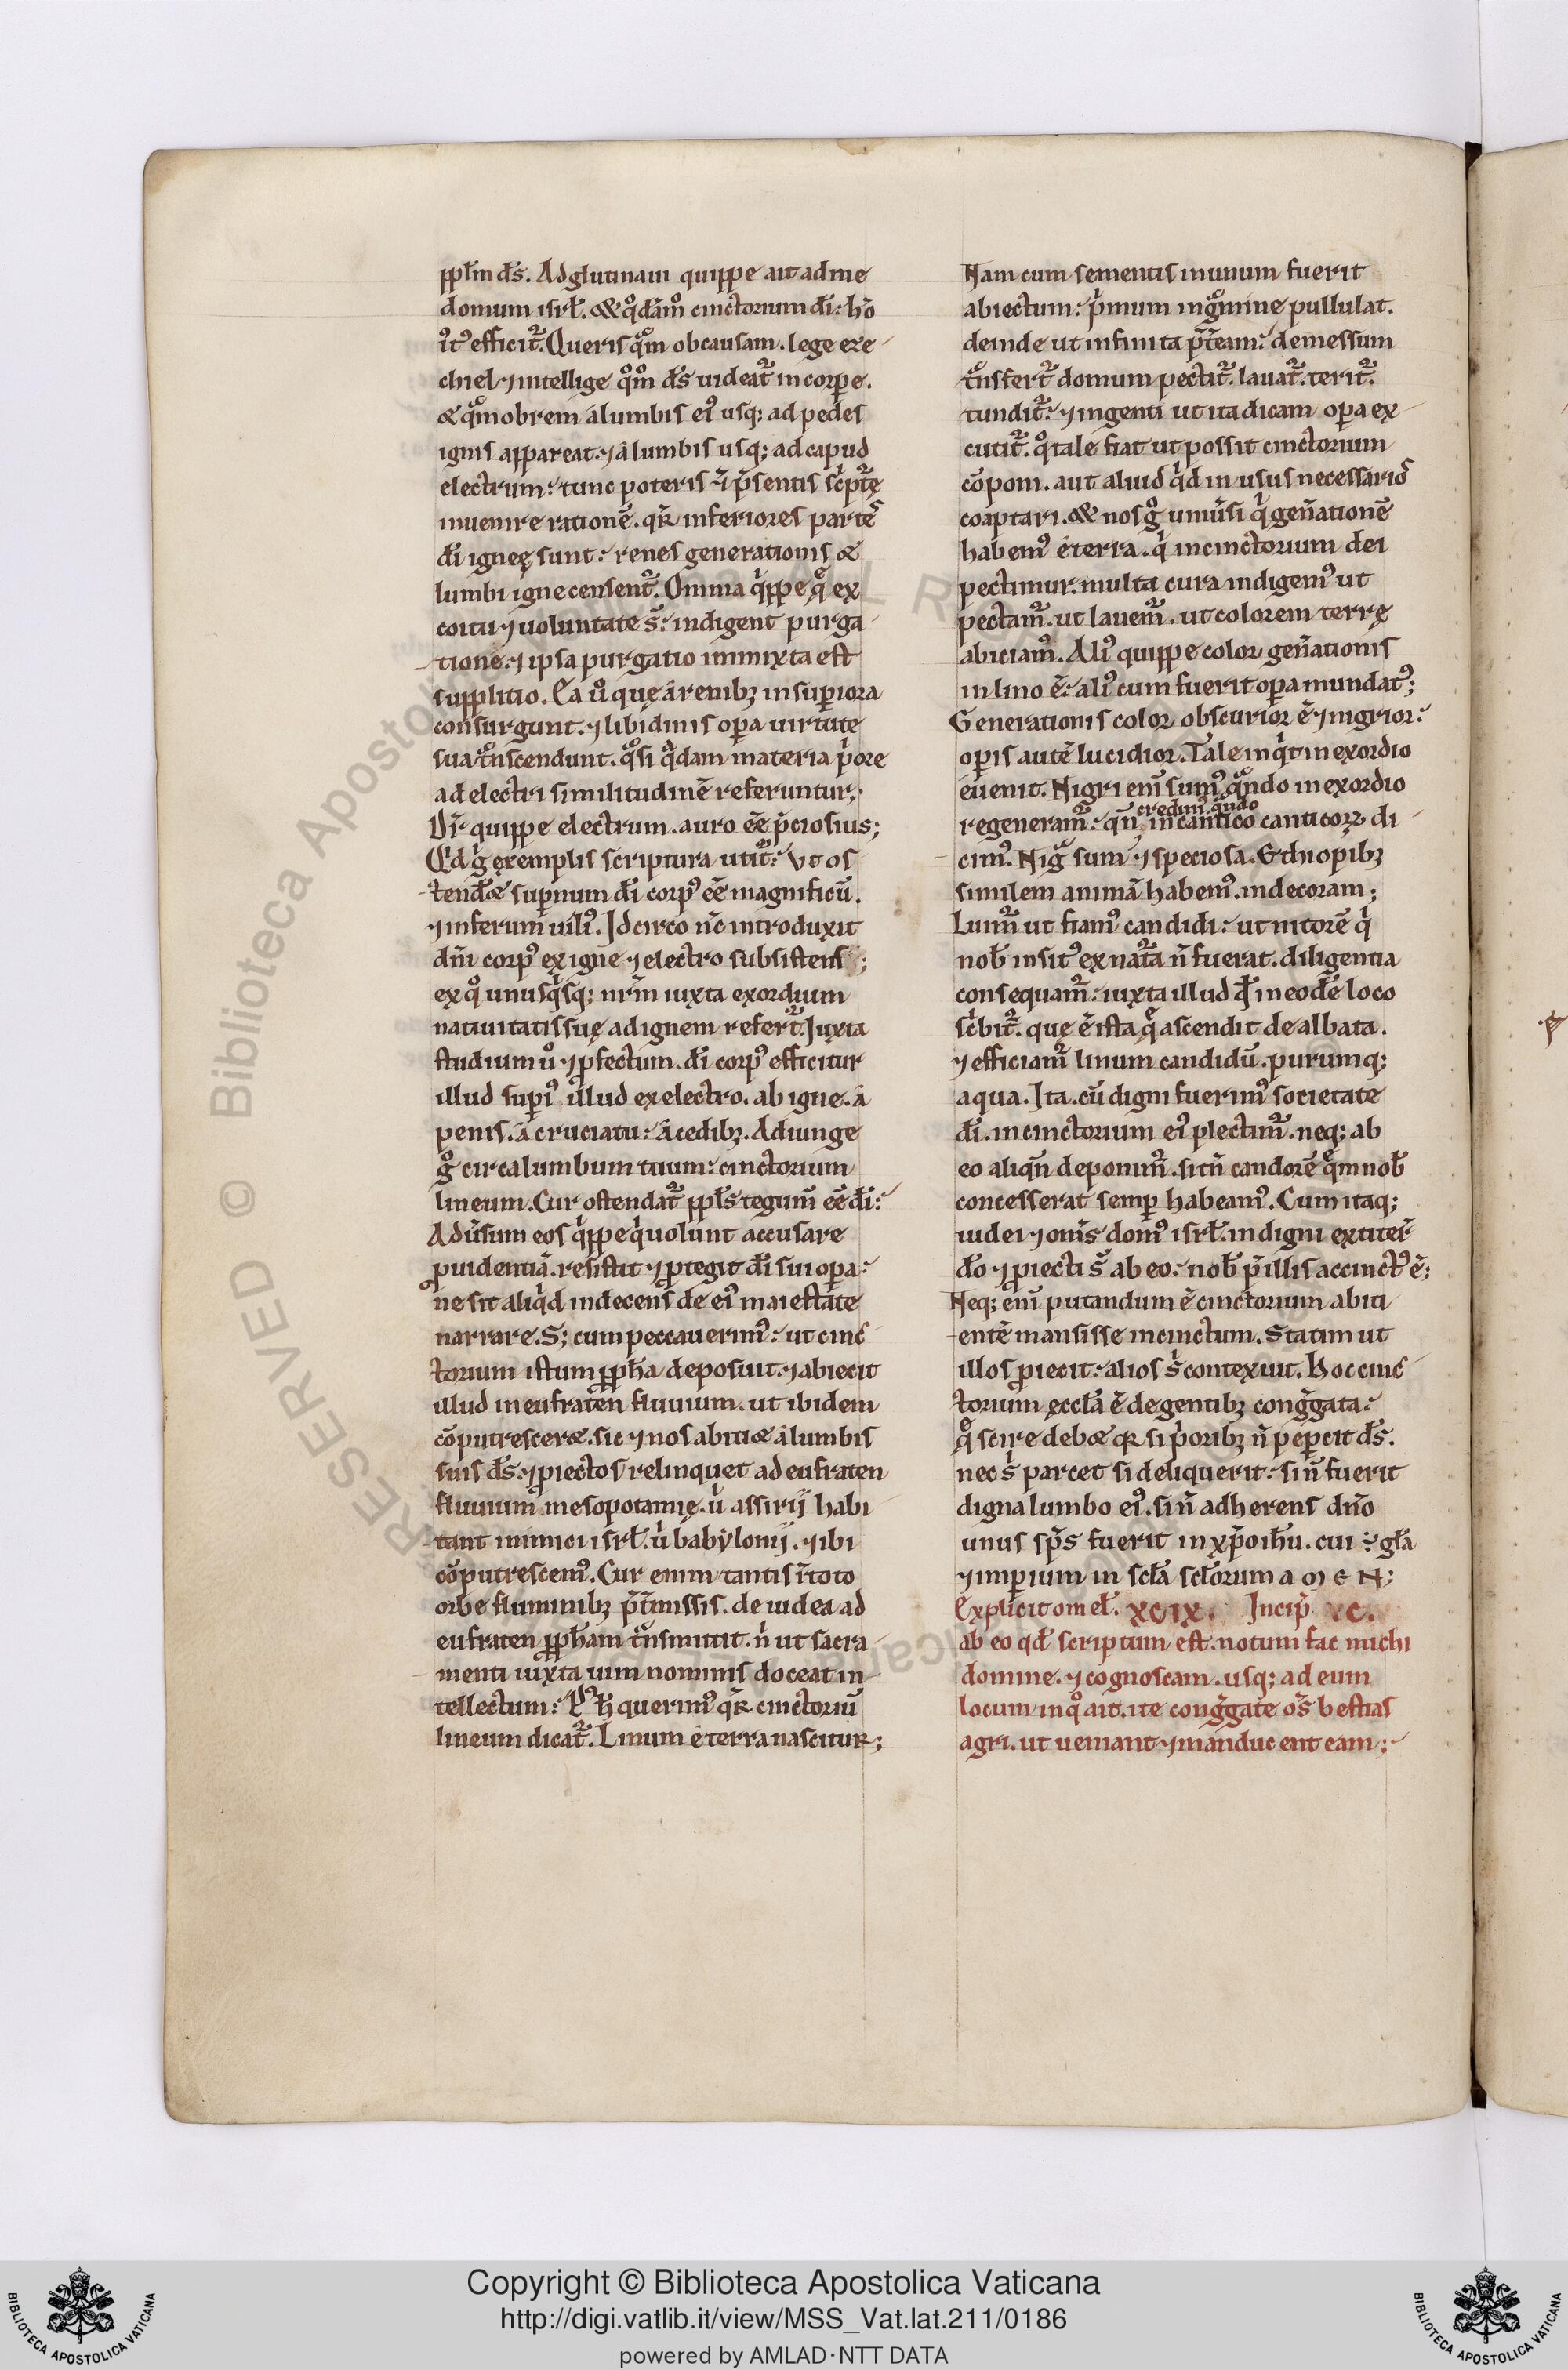 ppl̅m d̅s. Adglutinaui quippe ait ad me
domum isrl̅. & qͦda̅mͦ cinctorium di̅: ho̅
iͥtꝰ efficit᷑. Queris qͦm ob causam. lege eze
chiel ⁊ intellige qͦmͦ d̅s uideat᷑ in corpe.
& qͣmobrem a lumbis eiꝰ usq; ad pedes
ignis appareat. ⁊ a lumbis usq; ad capud
electrum: tunc poteris ⁊ p̅sentis sc̅pt᷑ę
inuenire ratione̅. qꝛ inferiores partes
di̅ igneę sunt: renes generationis &
lumbi igne censent᷑. Omnia qͥppe quę ex
coitu ⁊ uoluntate s̅: indigent purga
tione. ⁊ ipsa purgatio immixta est
supplitio. Ea uͦ quę a renibꝫ in supiora
consurgunt. ⁊ libidinis opa uirtute
sua tͣnscendunt. qͣsi qͣdam materia pͥore
ad electri similitudine̅ referuntur;
Dr̅ quippe electrum. auro ee̅ p̅ciosius;
Qͥd gͥ exemplis scriptura utit᷑: ut os
tend& supnum di̅ corpꝰ ee̅ magnificu̅.
⁊ inferum uiliꝰ. Idcirco nc̅ introduxit
dn̅i corpꝰ ex igne ⁊ electro subsistens;
ex qͦ unusqͥsq; nr̅m iuxta exordium
natiuitatis suę ad ignem refert᷑. Iuxta
studium uͦ ⁊ pfectum. di̅ corpꝰ efficitur
illud supiꝰ illud ex electro. ab igne. a
penis. a cruciatu: a cedibꝫ. Adiunge
gͦ circa lumbum tuum: cinctorium
lineum. Cur ostendat᷑ ppl̅s tegum̅ ee̅ di̅:
Adu̅sum eos qͥppe qͥ uolunt accusare
puidentia̅. resistit ⁊ ptegit di̅ sui opa:
ne sit aliqͥd indecens de eiꝰ maiestate
narrare. S; cum peccauerimꝰ: ut cinc
torium istum ppħa deposuit. ⁊ abiecit
illud in eufraten fluuium. ut ibidem
co̅putrescer&. sic ⁊ nos abiti& a lumbis
suis d̅s. ⁊ piectos relinquet ad eufraten
fluuium mesopotamię. uͥ assirij habi
tant inimici isrl̅. uͥ babylonij. ⁊ ibi
co̅putrescemꝰ. Cur enim tantis i̅ toto
orbe fluminibꝫ p̅t̅missis. de iudea ad
eufraten ppħam tͣnsmittit. nͥ ut sacra
menti iuxta uim nominis doceat in
tellectum: Pꝰ ħ querimꝰ qꝛ cinctoriu̅
lineum dicat᷑. Linum e terra nascitur;
Nam cum sementis in unum fuerit
abiectum: pͥmum in gͣmine pullulat.
deinde ut infinita p̅t̅eam: demessum
tͣnsfert᷑ domum pectit᷑. lauat᷑. terit᷑.
tundit᷑: ⁊ ingenti ut ita dicam opa ex
cutit᷑. qͦ tale fiat ut possit cinctorium
co̅poni. aut aliud qͥd in usus necessarios
coaptari. & nos gͦ uniu̅si qͥ gen̅atione̅
habemꝰ e terra. qͥ in cinctorium dei
pectimur. multa cura indigemꝰ ut
pectam᷑. ut lauem᷑. ut colorem terrę
abiciamꝰ. Aliꝰ quippe color gen̅ationis
in lino e̅: aliꝰ cum fuerit opa mundatꝰ;
Generationis color obscurior e̅ ⁊ nigrior:
opis aute̅ lucidior. Tale inqͥt in exordio
euenit. Nigri eni̅ sumꝰ qͣndo in exordio
credimꝰ. qͣndo
regeneram᷑: qn̅ in cantico canticoꝝ di
cimꝰ. Nigͣ sum ⁊ speciosa. Ethiopibꝫ
similem anima̅ habemꝰ. indecoram;
Lum᷑ ut fiamꝰ candidi: ut nitore̅ qͥ
nob̅ insitꝰ ex nat᷑a n̅ fuerat. diligentia
consequam᷑: iuxta illud qd̅ in eode̅ loco
sc̅bit᷑. que e̅ ista quę ascendit dealbata.
⁊ efficiam᷑ linum candidu̅. purumq;
aqua. Ita. cu̅ digni fuerimꝰ societate
di̅. in cinctorium eiꝰ plectim᷑. neq; ab
eo aliqn̅ deponim᷑. si tn̅ candore̅ que̅ nob̅
concesserat semp habeamꝰ. Cum itaq;
iudei ⁊ om̅s domꝰ isrl̅. indigni extiter̅
do̅ ⁊ piecti s̅ ab eo: nob̅ p̅ illis accinctꝰ e̅;
Neq; eni̅ putandum e̅ cinctorium abiti
ente̅ mansisse incinctum. Statim ut
illos piecit: alios sͥ contexuit. Hoc cinc
torium eccl̅a e̅ de gentibꝫ cong̅gata:
quę scire deb& qꝛ si pͥoribꝫ n̅ pepercit d̅s.
nec sͥ parcet si deliquerit: si n̅ fuerit
digna lumbo eiꝰ. si n̅ adherens dn̅o
unus sp̅s fuerit in xp̅o ihu̅. cui ÷ gl̅a
⁊ imperium in scl̅a scl̅orum a m e n;
Explicit omel̅. xcix. Incip̅ xc.
ab eo qd̅ scriptum est. notum fac michi
domine. ⁊ cognoscam. usq; ad eum
locum in qͦ ait. ite cong̅gate os̅ bestias
agri. ut ueniant ⁊ manducent eam;
© Biblioteca Apostolica Vaticana. ALL RIGHTS RESERVED
Copyright © Biblioteca Apostolica Vaticana
http://digi.vatlib.it/view/MSS_Vat.lat.211/0186
powered by AMLAD·NTT DATA
BIBLIOTECA APOSTOLICA VATICANA
BIBLIOTECA APOSTOLICA VATICANA